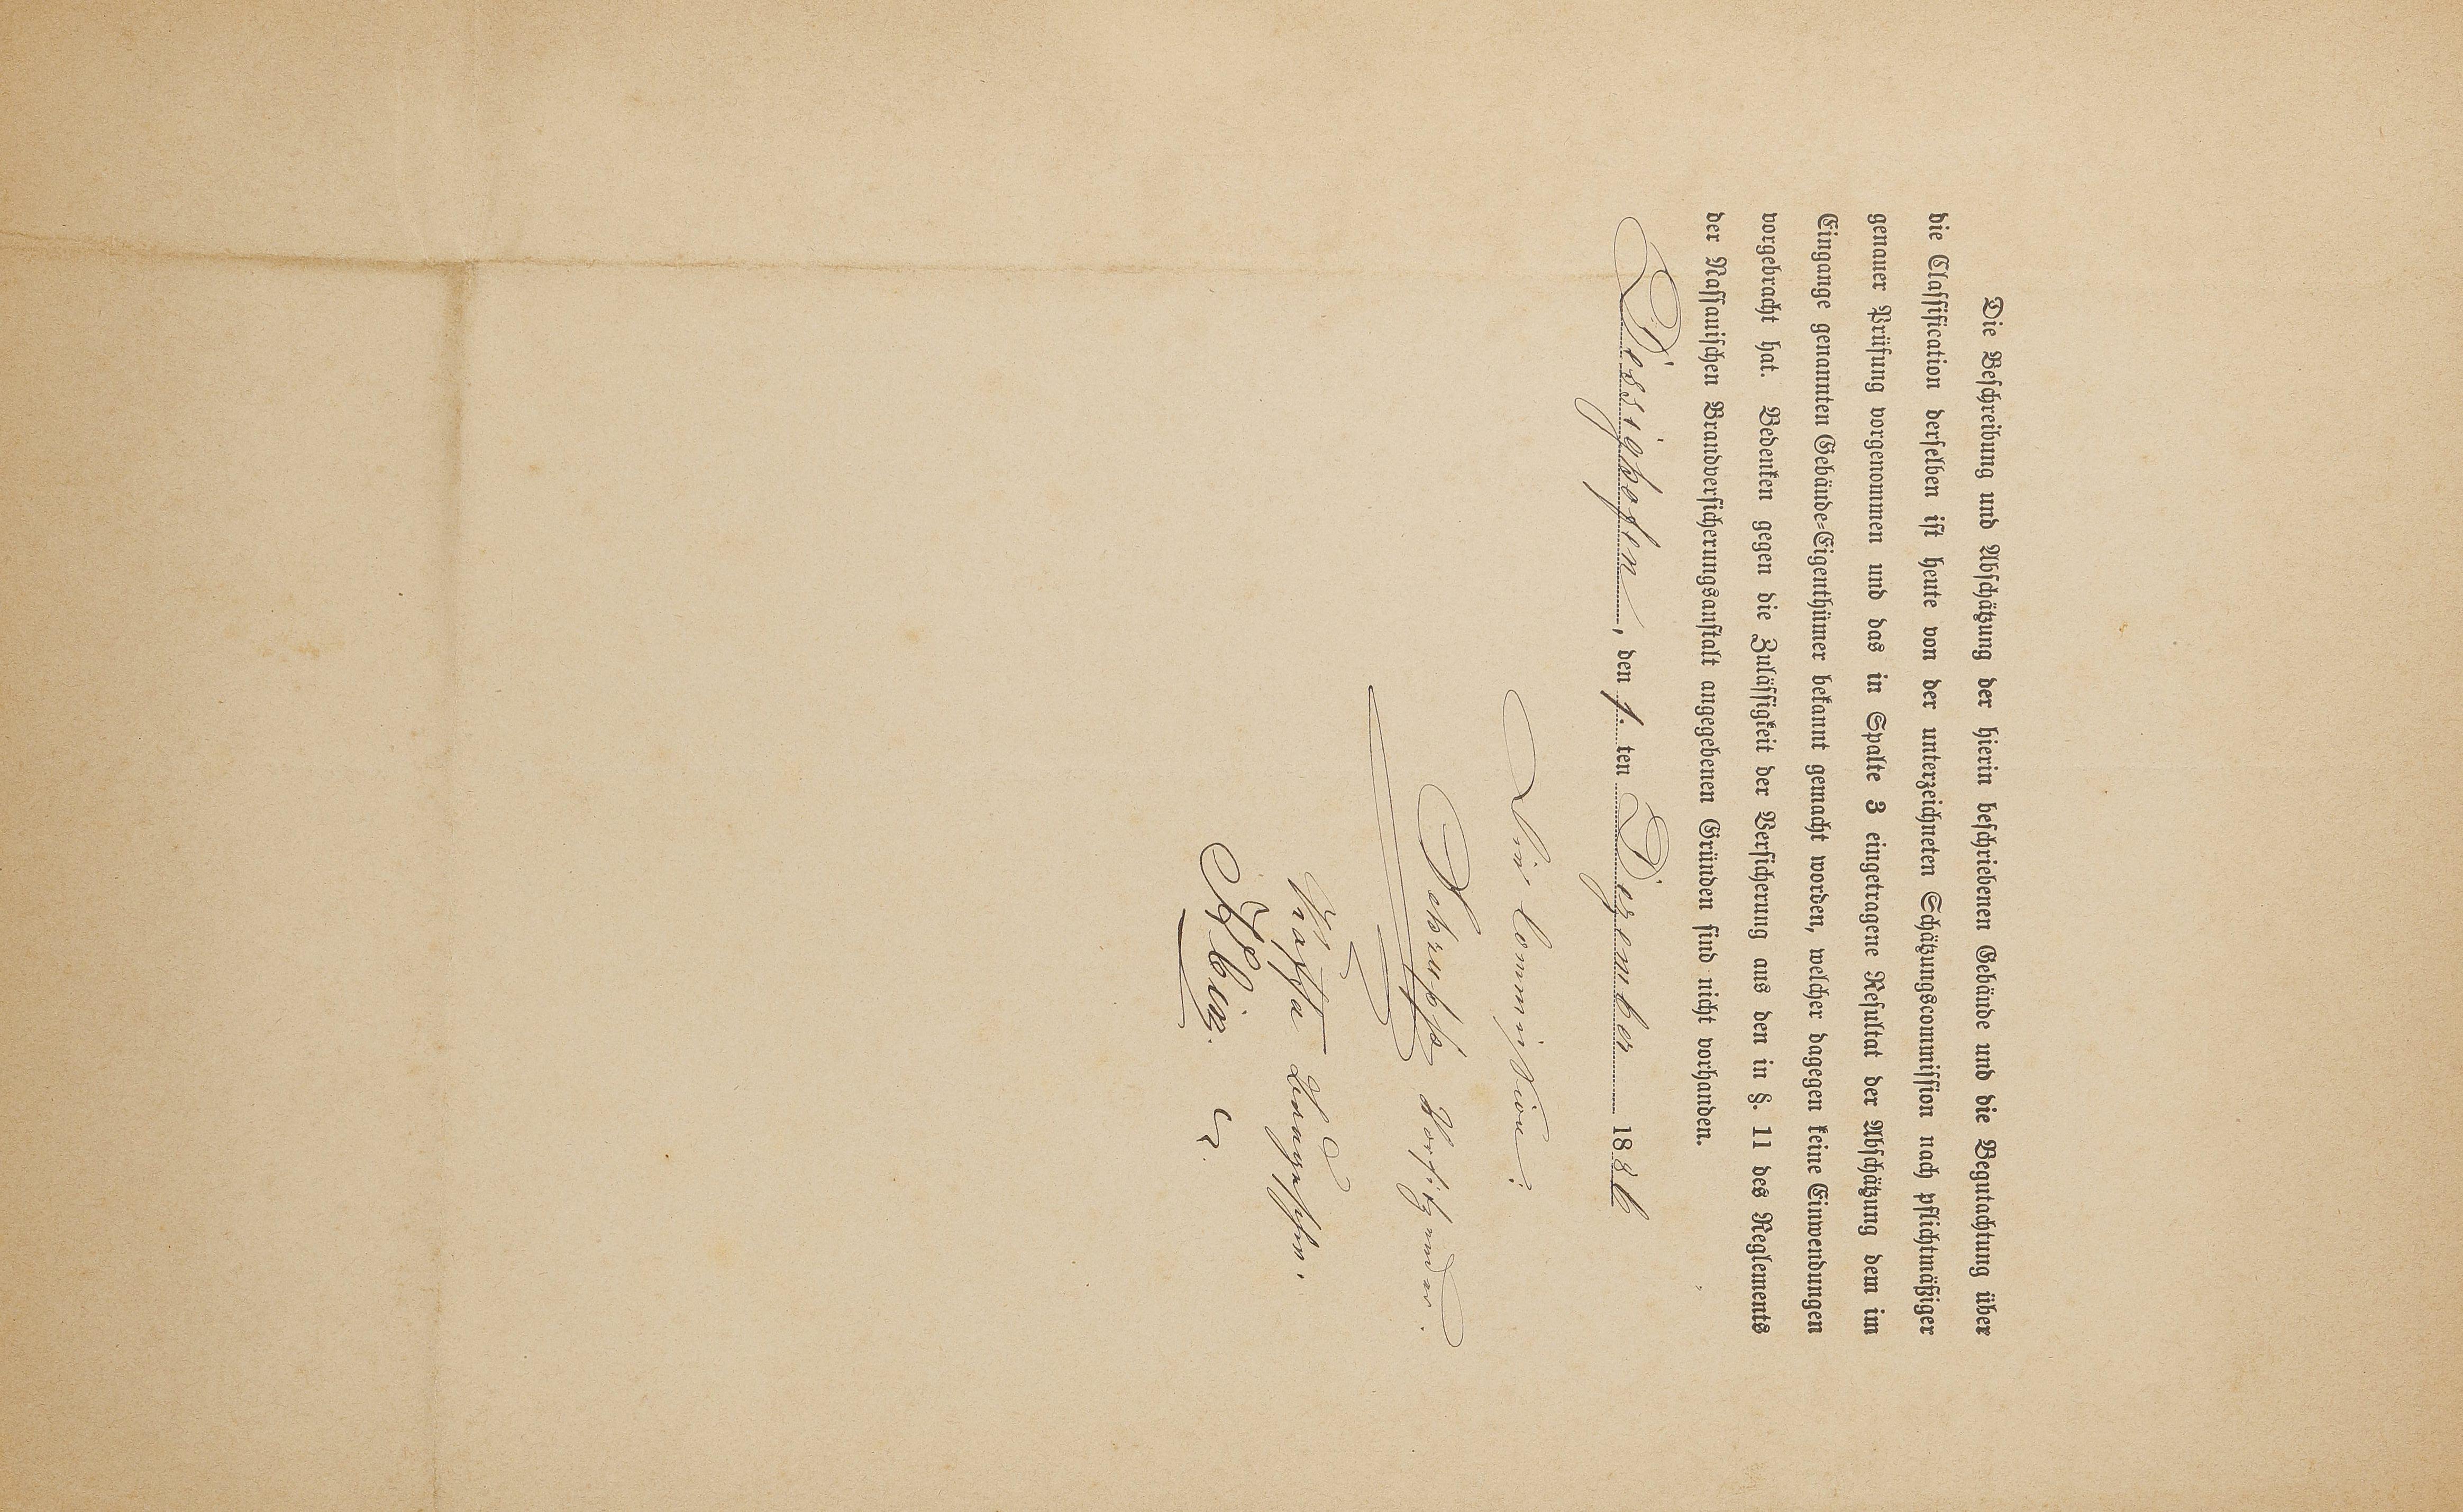 Die Beschreibung und Abschätzung der hierin beschriebenen Gebäude und die Begutachtung über
die Classification derselben ist heute von der unterzeichneten Schätzungscommission nach pflichtmäßiger
genauer Prüfung vorgenommen und das in Spalte 3 eingetragene Resultat der Abschätzung dem im
Eingange genannten Gebäude-Eigenthümer bekannt gemacht worden, welcher dagegen keine Einwendungen
vorgebracht hat. Bedenken gegen die Zulässigkeit der Versicherung aus den in §. 11 des Reglements
der Nassauischen Brandversicherungsanstalt angegebenen Gründen sind nicht vorhanden.
Dessighofen, den 1. ten Dezember 1886
Die Commission:
Vorsitzender.